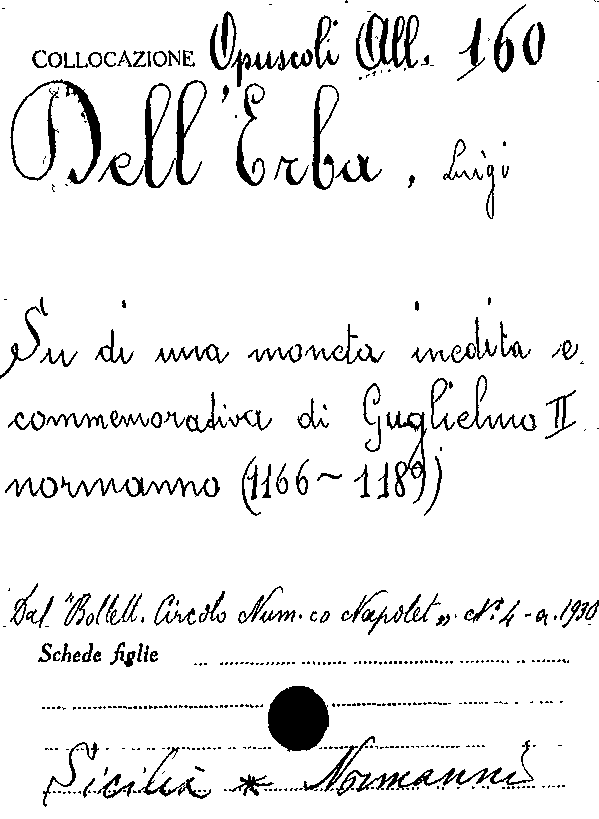 COLLOCAZIONE Opuscoli All. 160
Dell'Erba, Luigi
Su di una moneta inedita e
commemorativa di Guglielmo II
normanno (1166~1189)
Dal "Bollett. Circolo Num.co Napolet„ N.º 4 - a. 1930
Schede figlie
Sicilia * Normanni